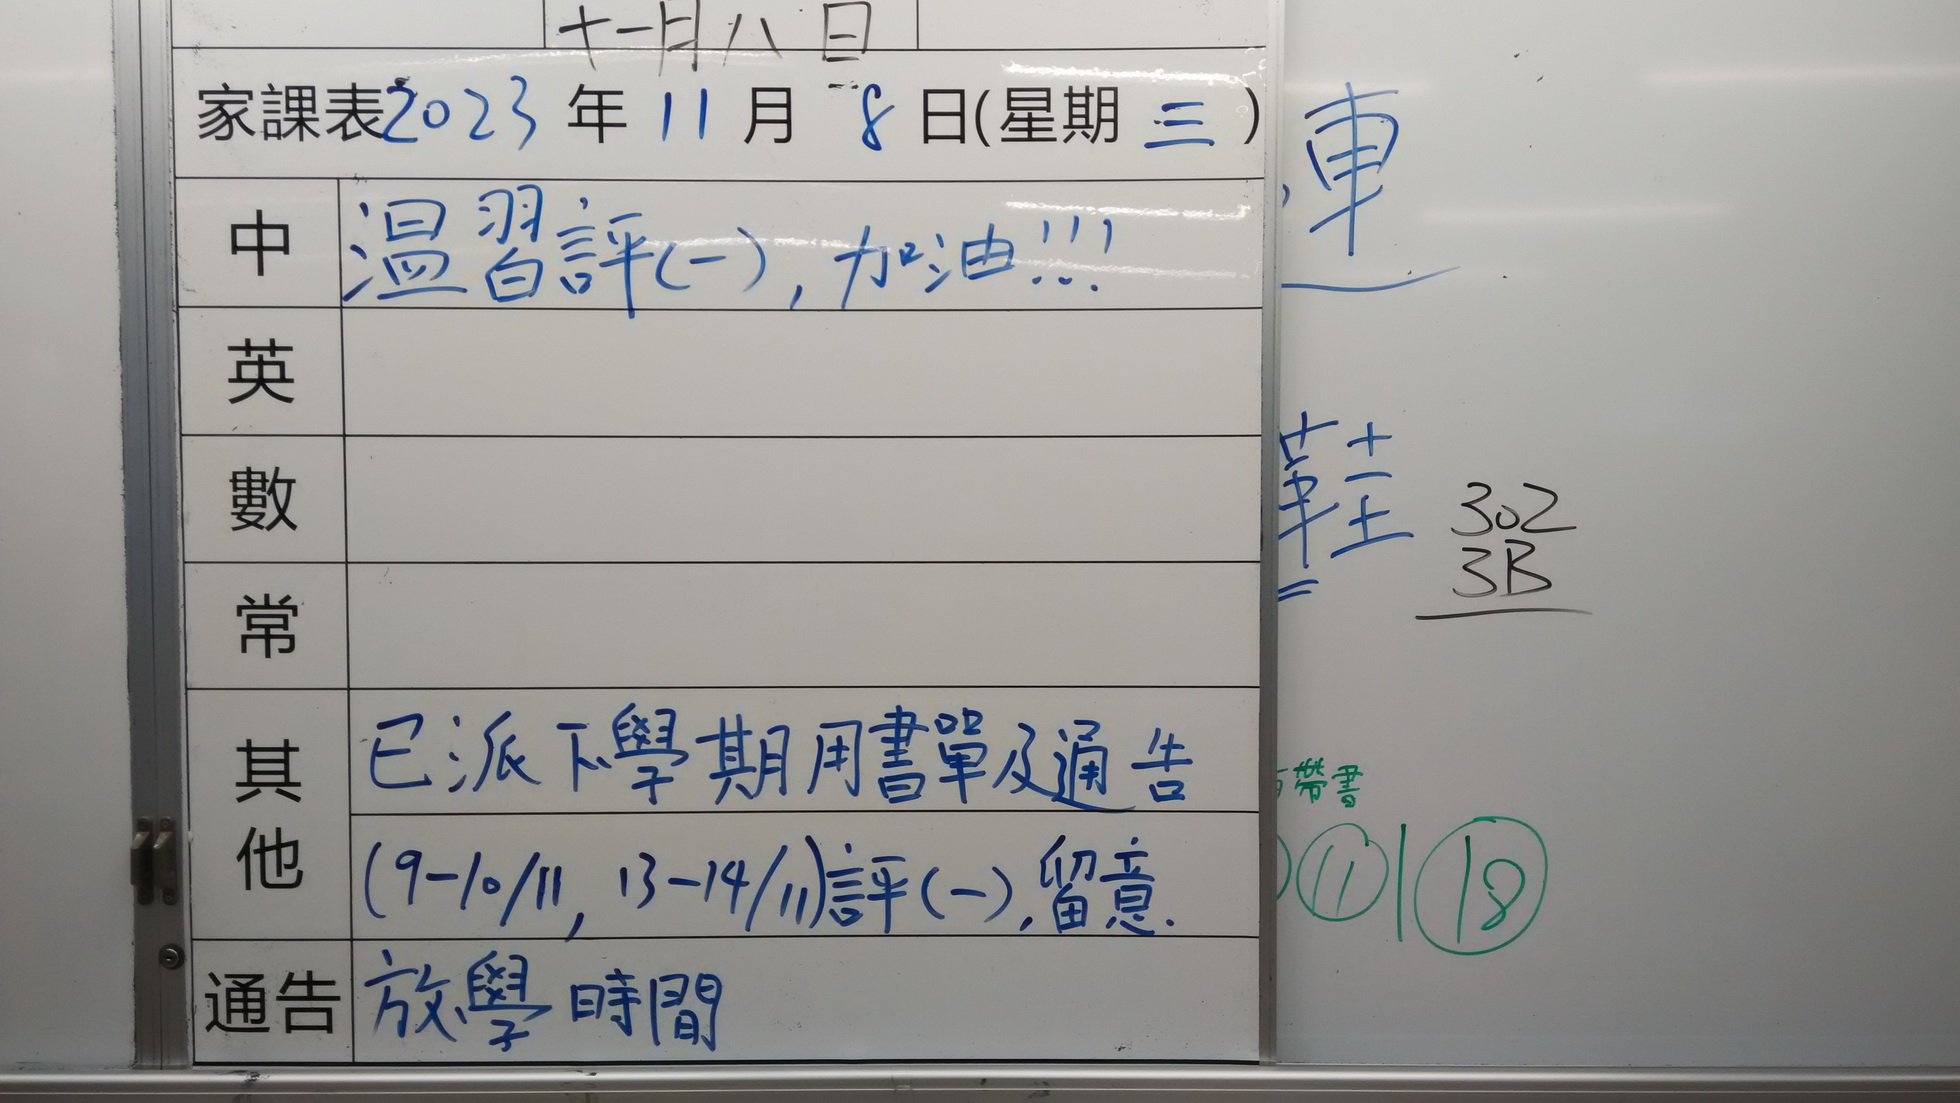 十一月八日
家課表2023年11月8日(星期三)
中 温習評(一),加油!!!
英
數
常
其他 已派下學期用書單及通告
(9-10/11, 13-14/11)評(一),留意.
通告 放學時間
車
鞋
302
3B
帶書
11 | 18